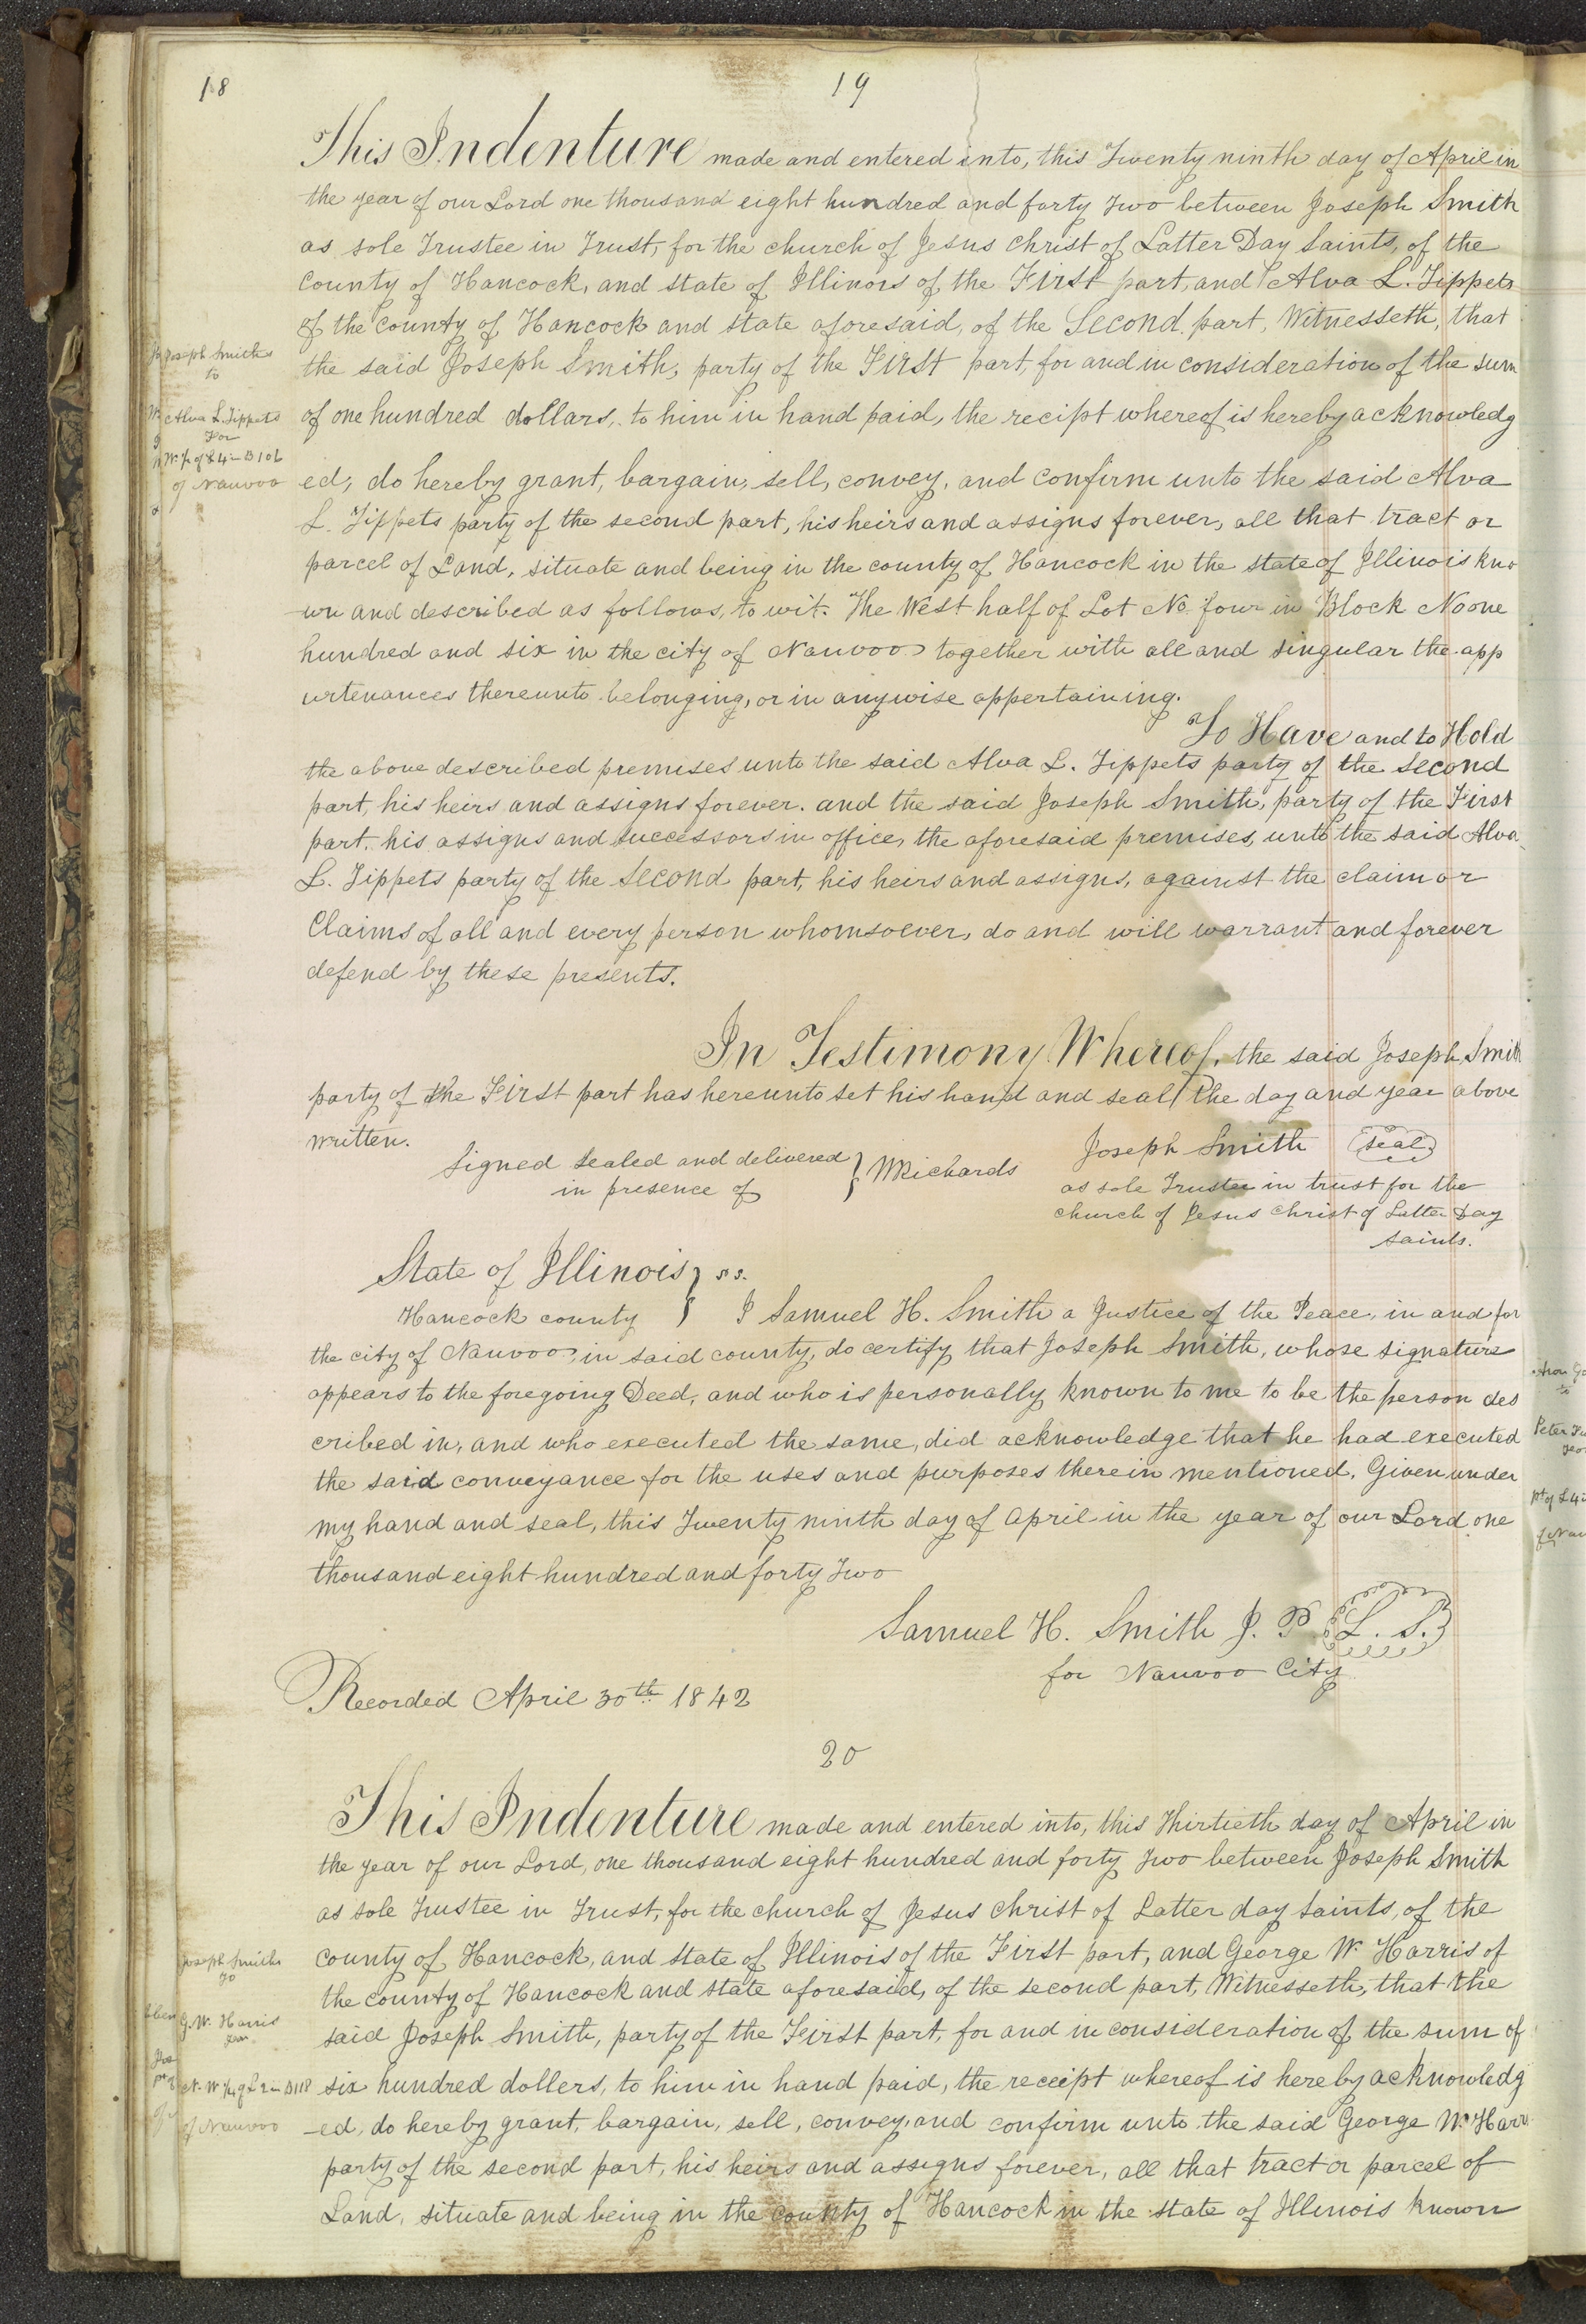 18
19
This Indenture made and entered into, this Twenty ninth day of April in
the year of our Lord one thousand eight hundred and forty Two between Joseph Smith
as sole Trustee in Trust, for the church of Jesus Christ of Latter Day Saints, of the
County of Hancock, and state of Illinois of the First part, and Alva L. Tippets
of the County of Hancock and state aforesaid, of the Second part, Witnesseth, that
the said Joseph Smith, party of the First part, for and in consideration of the sum
of one hundred dollars, to him in hand paid, the recipt whereof is hereby acknowledg
ed, do hereby grant, bargain, sell, convey, and confirm unto the said Alva
L. Tippets party of the second part, his heirs and assigns forever, all that tract or
parcel of Land, situate and being in the county of Hancock in the state of Illinois kno
wn and described as follows, to wit. The West half of Lot No. four in Block No one
hundred and six in the city of Nauvoo together with all and singular the app
urtenances thereunto belonging, or in anywise appertaining.
To Have and to Hold
the above described premises unto the said Alva L. Tippets party of the second
part, his heirs and assigns forever. and the said Joseph Smith, party of the First
part. his assigns and successors in office, the aforesaid premises, unto the said Alva
L. Tippets party of the second part, his heirs and assigns, against the claim or
Claims of all and every person whomsoever, do and will warrant and forever
defend by these presents.
In Testimony Whereof, the said Joseph Smith
party of the First part has hereunto set his hand and seal the day and year above
written.
Signed Sealed and delivered } WRichards
in presence of
Joseph Smith (seal)
as sole Trustee in trust for the
church of Jesus Christ of Latter Day
Saints.
State of Illinois } ss.
Hancock county } I Samuel H. Smith a Justice of the Peace, in and for
the city of Nauvoo, in said county, do certify that Joseph Smith, whose signature
appears to the foregoing Deed, and who is personally known to me to be the person des
cribed in, and who executed the same, did acknowledge that he had executed
the said conveyance for the uses and purposes therein mentioned. Given under
my hand and seal, this Twenty ninth day of April in the year of our Lord one
thousand eight hundred and forty Two
Samuel H. Smith J. P. L. S.
for Nauvoo City
Recorded April 30th 1842
Joseph Smith
to
Alva L. Tippets
For
W. ½ of L 4 in B 106
of Nauvoo
20
This Indenture made and entered into, this Thirtieth day of April in
the year of our Lord, one thousand eight hundred and forty Two between Joseph Smith
as sole Trustee in Trust, for the church of Jesus Christ of Latter day Saints, of the
county of Hancock, and state of Illinois of the First part, and George W. Harris of
the county of Hancock and state aforesaid, of the second part, Witnesseth, that the
said Joseph Smith, party of the First part, for and in consideration of the sum of
six hundred dollers, to him in hand paid, the receipt whereof is hereby acknowledg
ed, do hereby grant, bargain, sell, convey, and confirm unto the said George W. Harr
party of the second part, his heirs and assigns forever, all that tract or parcel of
Land, situate and being in the county of Hancock in the state of Illinois known
Joseph Smith
To
G. W. Harris
N. W ¼ of L 2 in B 118
of Nauvoo
to
Peter
pt of L 4